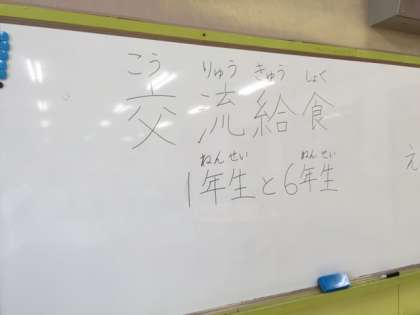 こう りゅう きゅう しょく
交流給食
ねんせい ねんせい
1年生と6年生
え